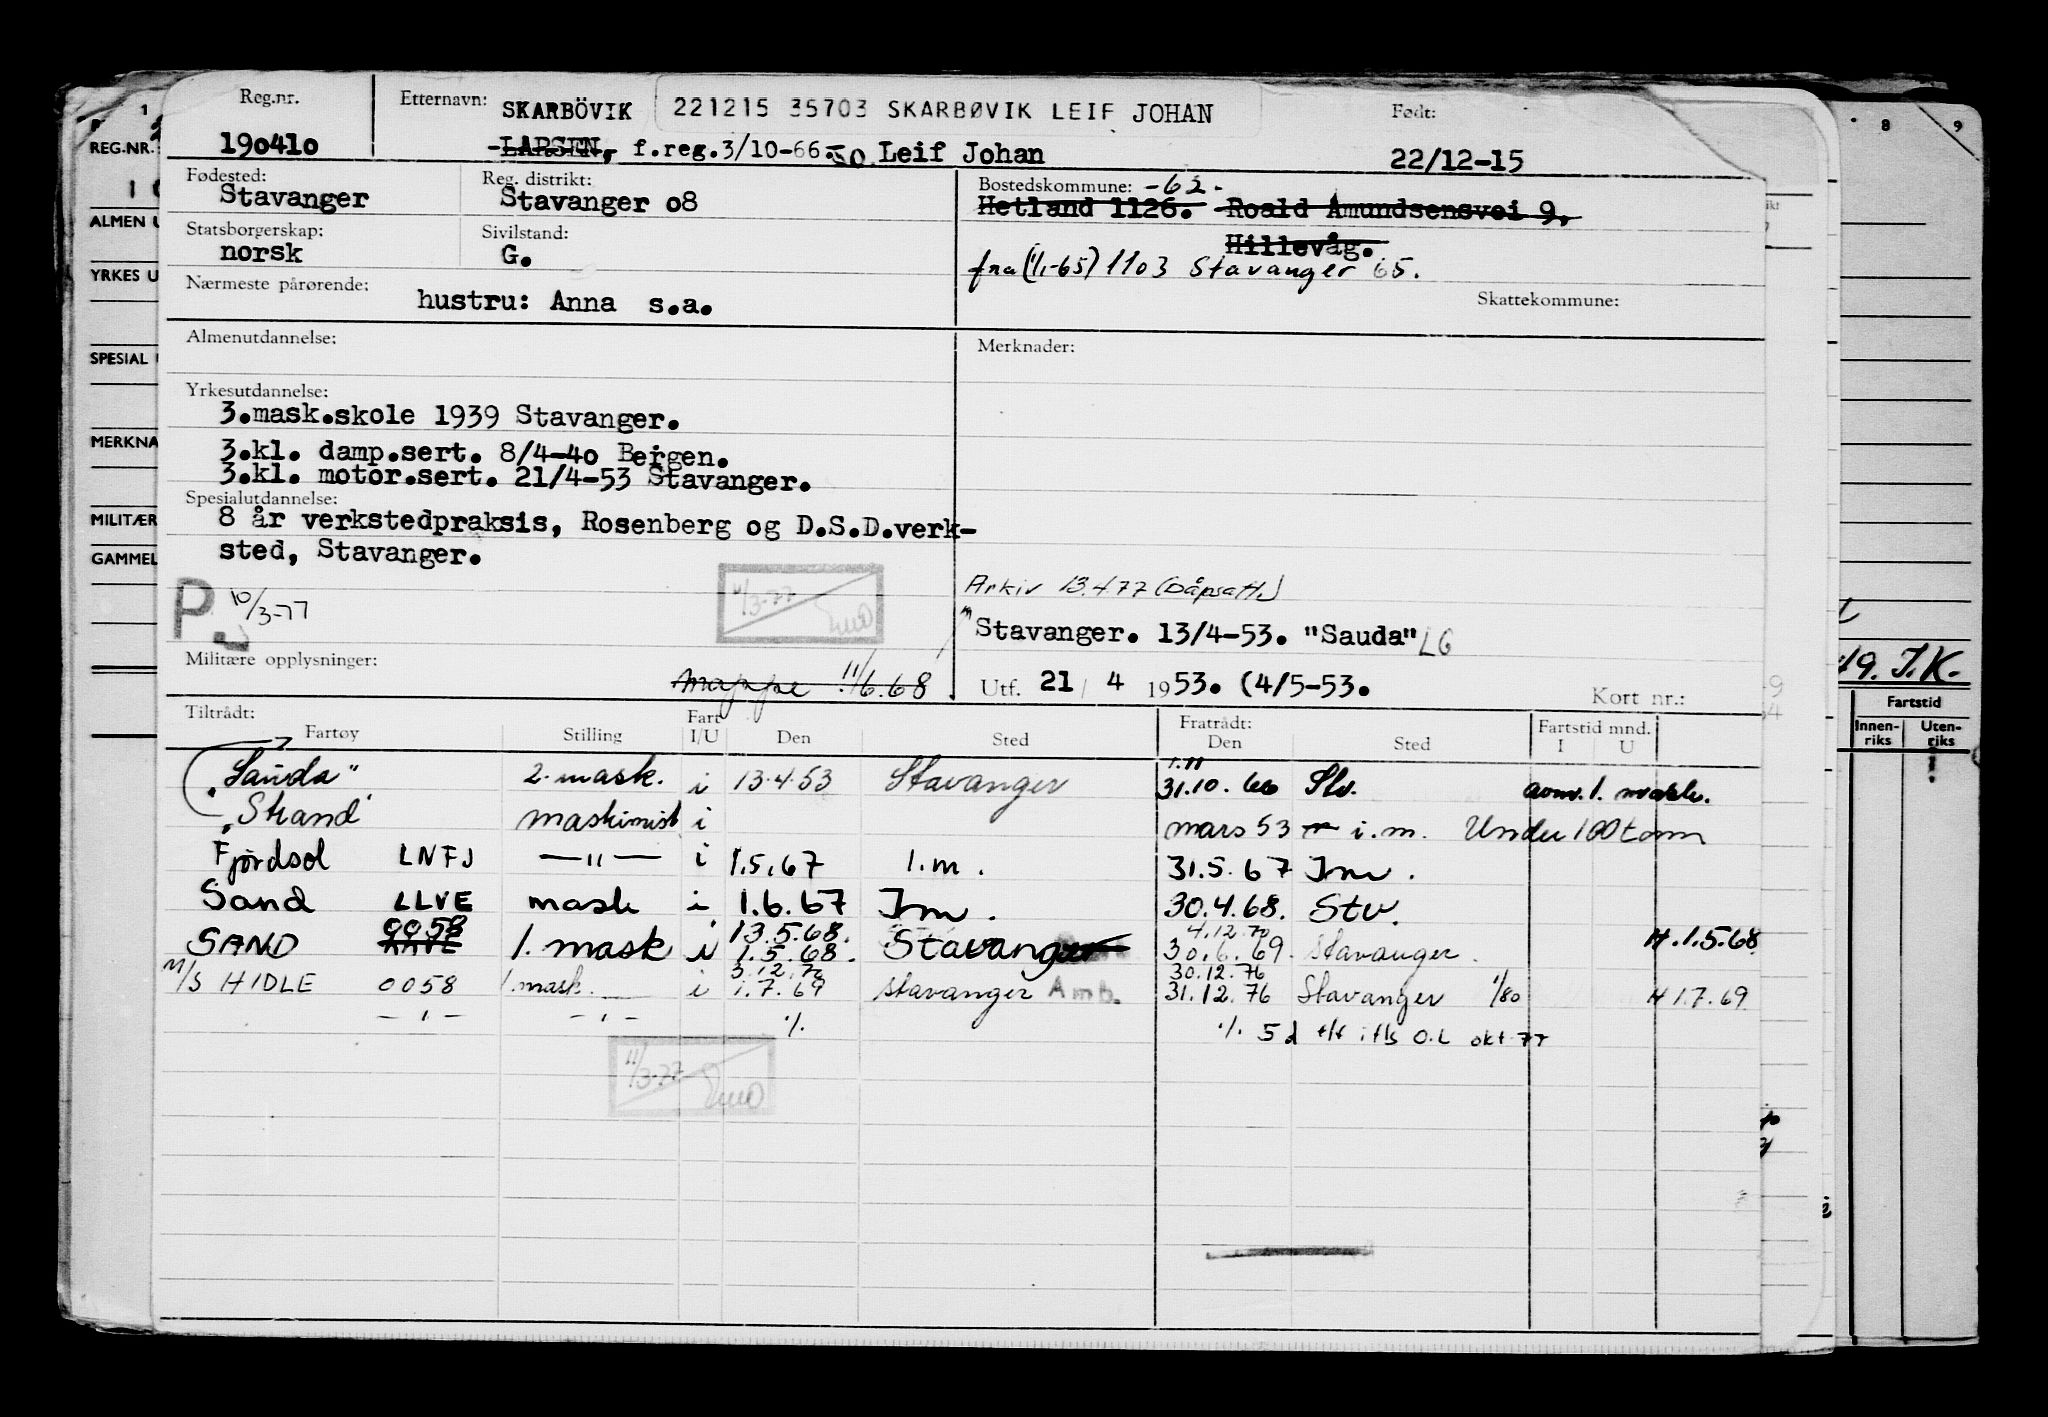 Reg.nr. Etternavn: SKARBÖVIK 221215 35703 SKARBØVIK LEIF JOHAN Født:
190410 -LARSEN, f.reg.3/10-66. Leif Johan 22/12-15
Fødested: Reg. distrikt: Bostedskommune: -62-
Stavanger Stavanger o8 Hetland 1126. Roald Amundsensvei 9,
Statsborgerskap: Sivilstand: Hillevåg.
norsk G. fra (1/1-65) 1103 Stavanger 65.
Nærmeste pårørende: Skattekommune:
hustru: Anna s.a.
Almenutdannelse: Merknader:
Yrkesutdannelse:
3.mask.skole 1939 Stavanger.
3.kl. damp.sert. 8/4-4o Bergen.
3.kl. motor.sert. 21/4-53 Stavanger.
Spesialutdannelse:
8 år verkstedpraksis, Rosenberg og D.S.D.verk-
sted, Stavanger.
P. 10/3-77 11/3-77
Arkiv 13.4.77
Stavanger. 13/4-53. "Sauda" LG
Militære opplysninger: mappe 11/6.68 Utf. 21/ 4 1953. (4/5-53. Kort nr.:
Tiltrådt: Fratrådt:
Fartøy Stilling Fart I/U Den Sted Den Sted Fartstid mnd. I U
"Sauda" 2. mask. i 13.4.53 Stavanger 1.11 31.10.66 Stv. 1. mask.
"Strand" maskinist i mars 53 i.m. Under 100 tonn
Fjordsol LNFJ —"— i 1.5.67 I.m. 31.5.67 I.m.
Sand LLVE mask i 1.6.67 I.m. 30.4.68. Stv.
0058 13.5.68. 4.12.70
SAND 1. mask i 1.5.68. Stavanger 30.6.69. Stavanger. H.1.5.68
3.12.70 30.12.76
M/S HIDLE 0058 1.mask. i 1.7.69 Stavanger Amb. 31.12.76 Stavanger 1/80 H 1.7.69
—"— —"— ./. ./. 5 d okt 77
11/3-77
REG.NR.
ALMEN U
YRKES U
SPESIAL
MERKNA
MILITÆR
GAMMEL
8 9
49. J.K.
Fartstid
Innen- Uten-
riks riks